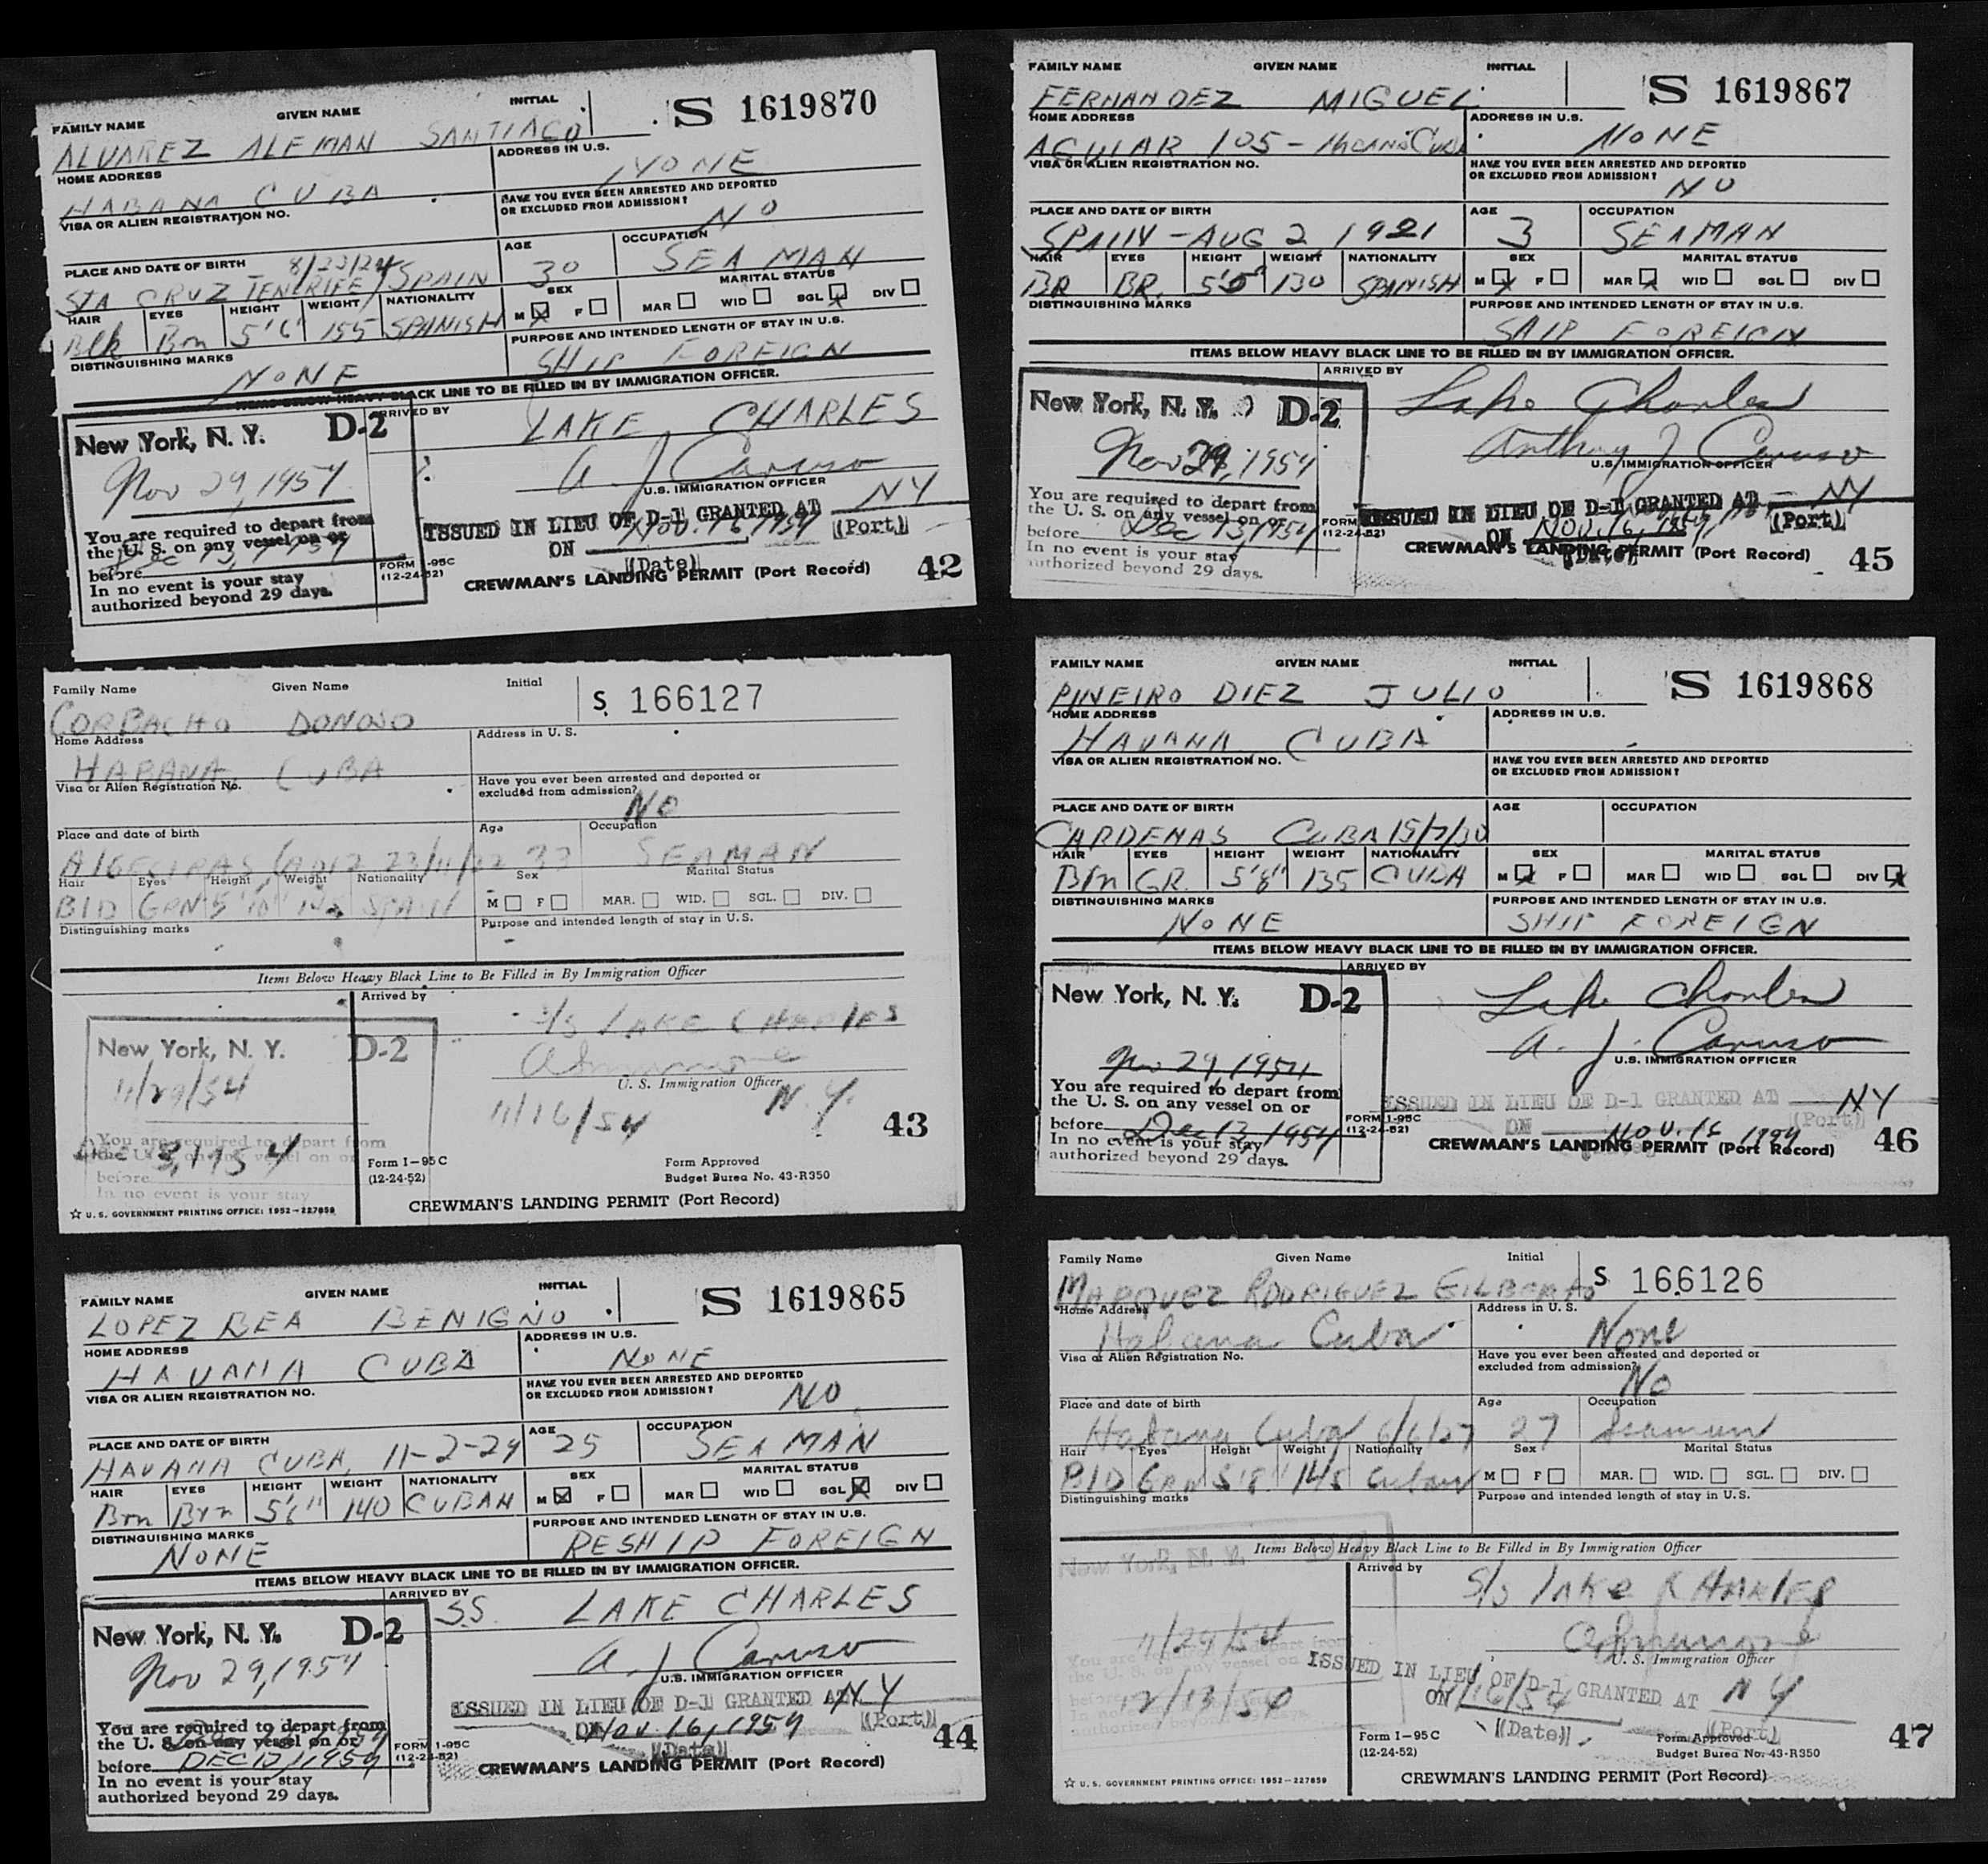 FAMILY NAME GIVEN NAME INITIAL
S 1619870
ALVAREZ ALEMAN SANTIAGO
HOME ADDRESS ADDRESS IN U.S.
HABANA CUBA NONE
VISA OR ALIEN REGISTRATION NO. HAVE YOU EVER BEEN ARRESTED AND DEPORTED
OR EXCLUDED FROM ADMISSION?
NO
PLACE AND DATE OF BIRTH AGE OCCUPATION
8/23/24
STA CRUZ TENERIFE SPAIN 30 SEAMAN
HAIR EYES HEIGHT WEIGHT NATIONALITY SEX MARITAL STATUS
Blk Brn 5'6" 155 SPANISH M F MAR WID SGL DIV
DISTINGUISHING MARKS PURPOSE AND INTENDED LENGTH OF STAY IN U.S.
NONE SHIP FOREIGN
ITEMS BELOW HEAVY BLACK LINE TO BE FILLED IN BY IMMIGRATION OFFICER.
ARRIVED BY
LAKE CHARLES
New York, N. Y. D-2
Nov 29, 1954
A J Caruso
U.S. IMMIGRATION OFFICER
You are required to depart from
the U. S. on any vessel on or
before Dec 13, 1954
In no event is your stay
authorized beyond 29 days.
ISSUED IN LIEU OF D-1 GRANTED AT NY
ON Nov. 16, 1954 (Port)
(Date)
FORM I-95C
(12-24-52)
CREWMAN'S LANDING PERMIT (Port Record) 42
Family Name Given Name Initial
S 166127
CORBACHO DONOSO
Home Address Address in U. S.
HABANA, CUBA
Visa or Alien Registration No. Have you ever been arrested and deported or
excluded from admission?
NO
Place and date of birth Age Occupation
ALGECIRAS, SEAMAN
Hair Eyes Height Weight Nationality Sex Marital Status
BLD GRN 5'10" SPAIN M F MAR. WID. SGL. DIV.
Distinguishing marks Purpose and intended length of stay in U. S.
Items Below Heavy Black Line to Be Filled in By Immigration Officer
Arrived by
S/S LAKE CHARLES
New York, N. Y. D-2
11/29/54
U. S. Immigration Officer
11/16/54 N.Y.
You are required to depart from
the U. S. on any vessel on or
before
In no event is your stay
43
Form I-95C
(12-24-52)
Form Approved
Budget Burea No. 43-R350
☆ U. S. GOVERNMENT PRINTING OFFICE: 1952-227859
CREWMAN'S LANDING PERMIT (Port Record)
FAMILY NAME GIVEN NAME INITIAL
S 1619865
LOPEZ BEA BENIGNO
HOME ADDRESS ADDRESS IN U.S.
HAVANA CUBA NONE
VISA OR ALIEN REGISTRATION NO. HAVE YOU EVER BEEN ARRESTED AND DEPORTED
OR EXCLUDED FROM ADMISSION?
NO
PLACE AND DATE OF BIRTH AGE OCCUPATION
HAVANA CUBA, 11-2-29 25 SEAMAN
HAIR EYES HEIGHT WEIGHT NATIONALITY SEX MARITAL STATUS
Brn Brn 5'6" 140 CUBAN M F MAR WID SGL DIV
DISTINGUISHING MARKS PURPOSE AND INTENDED LENGTH OF STAY IN U.S.
NONE RESHIP FOREIGN
ITEMS BELOW HEAVY BLACK LINE TO BE FILLED IN BY IMMIGRATION OFFICER.
ARRIVED BY
SS. LAKE CHARLES
New York, N. Y. D-2
Nov 29, 1954
A. J Caruso
U.S. IMMIGRATION OFFICER
You are required to depart from
the U. S. on any vessel on or
before DEC 13, 1954
In no event is your stay
authorized beyond 29 days.
ISSUED IN LIEU OF D-1 GRANTED AT NY
ON Nov. 16, 1954 (Port)
(Date)
FORM I-95C
(12-24-52)
CREWMAN'S LANDING PERMIT (Port Record) 44
FAMILY NAME GIVEN NAME INITIAL
S 1619867
FERNANDEZ MIGUEL
HOME ADDRESS ADDRESS IN U.S.
AGUIAR 105 - HABANA CUBA NONE
VISA OR ALIEN REGISTRATION NO. HAVE YOU EVER BEEN ARRESTED AND DEPORTED
OR EXCLUDED FROM ADMISSION?
NO
PLACE AND DATE OF BIRTH AGE OCCUPATION
SPAIN - AUG 2, 1921 3 SEAMAN
HAIR EYES HEIGHT WEIGHT NATIONALITY SEX MARITAL STATUS
BR BR. 130 SPANISH M F MAR WID SGL DIV
DISTINGUISHING MARKS PURPOSE AND INTENDED LENGTH OF STAY IN U.S.
SHIP FOREIGN
ITEMS BELOW HEAVY BLACK LINE TO BE FILLED IN BY IMMIGRATION OFFICER.
ARRIVED BY
Lake Charles
New York, N. Y. D-2
Nov 29, 1954
Anthony J Caruso
U.S. IMMIGRATION OFFICER
You are required to depart from
the U. S. on any vessel on or
before Dec 13, 1954
In no event is your stay
authorized beyond 29 days.
ISSUED IN LIEU OF D-1 GRANTED AT NY
ON Nov. 16, 1954 (Port)
(Date)
FORM
(12-24-52)
CREWMAN'S LANDING PERMIT (Port Record) 45
FAMILY NAME GIVEN NAME INITIAL
S 1619868
PINEIRO DIEZ JULIO
HOME ADDRESS ADDRESS IN U.S.
HAVANA CUBA
VISA OR ALIEN REGISTRATION NO. HAVE YOU EVER BEEN ARRESTED AND DEPORTED
OR EXCLUDED FROM ADMISSION?
PLACE AND DATE OF BIRTH AGE OCCUPATION
CARDENAS CUBA 15/7/30
HAIR EYES HEIGHT WEIGHT NATIONALITY SEX MARITAL STATUS
Brn GR. 5'8" 135 CUBA M F MAR WID SGL DIV
DISTINGUISHING MARKS PURPOSE AND INTENDED LENGTH OF STAY IN U.S.
NONE SHIP FOREIGN
ITEMS BELOW HEAVY BLACK LINE TO BE FILLED IN BY IMMIGRATION OFFICER.
ARRIVED BY
Lake Charles
New York, N. Y. D-2
Nov 29, 1954
A. J. Caruso
U.S. IMMIGRATION OFFICER
You are required to depart from
the U. S. on any vessel on or
before Dec 13, 1954
In no event is your stay
authorized beyond 29 days.
ISSUED IN LIEU OF D-1 GRANTED AT NY
ON Nov. 16 (Port)
FORM I-95C
(12-24-52)
CREWMAN'S LANDING PERMIT (Port Record) 46
Family Name Given Name Initial
S 166126
MARQUEZ RODRIGUEZ GILBERTO
Home Address Address in U. S.
Habana Cuba None
Visa or Alien Registration No. Have you ever been arrested and deported or
excluded from admission?
No
Place and date of birth Age Occupation
Habana Cuba 6/6/27 27 Seaman
Hair Eyes Height Weight Nationality Sex Marital Status
BLD GRN 5'8" 145 Cuban M F MAR. WID. SGL. DIV.
Distinguishing marks Purpose and intended length of stay in U. S.
Items Below Heavy Black Line to Be Filled in By Immigration Officer
New York, N. Y.
Arrived by
S/S LAKE CHARLES
11/29/54
U. S. Immigration Officer
12/13/54
ISSUED IN LIEU OF D-1 GRANTED AT NY
ON 11/16/54
(Date) (Port)
Form I-95C
(12-24-52)
Form Approved
Budget Burea No. 43-R350
47
☆ U. S. GOVERNMENT PRINTING OFFICE: 1952-227859
CREWMAN'S LANDING PERMIT (Port Record)